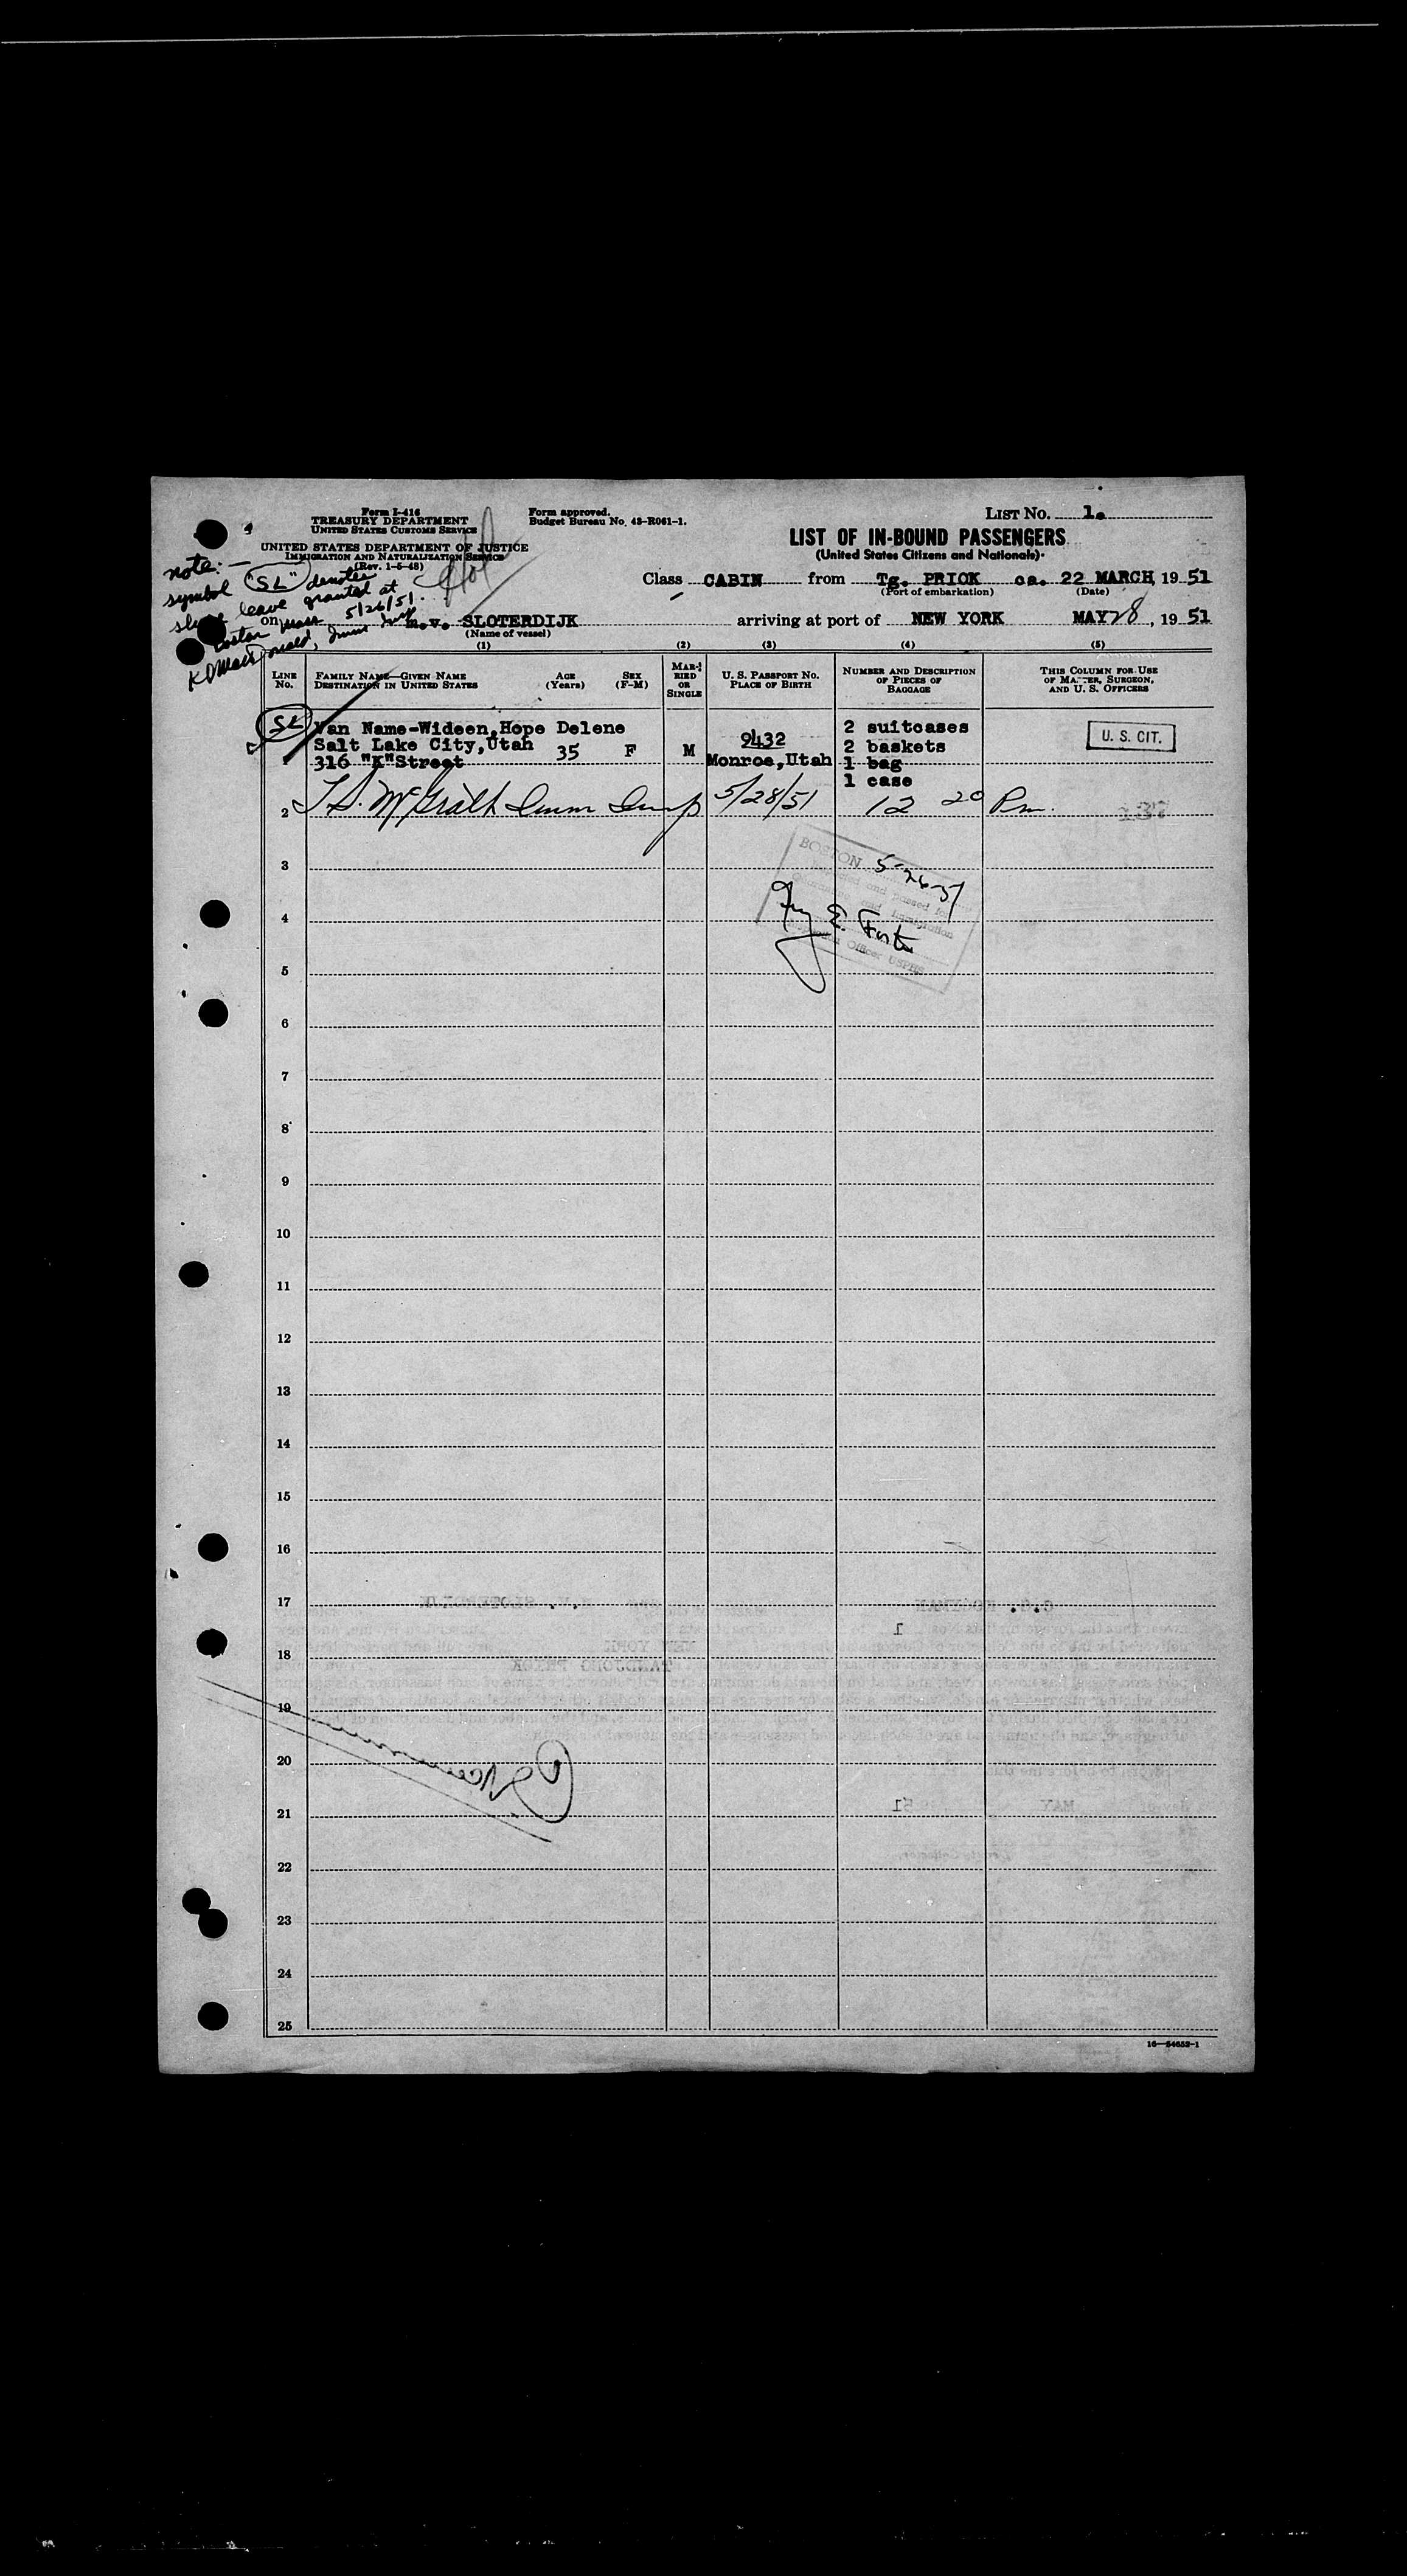 Form I-416
TREASURY DEPARTMENT
UNITED STATES CUSTOMS SERVICE
UNITED STATES DEPARTMENT OF JUSTICE
IMMIGRATION AND NATURALIZATION SERVICE
(Rev. 1-5-48)
Form approved.
Budget Bureau No. 43-R061-1.
LIST NO. 1.
LIST OF IN-BOUND PASSENGERS
(United States Citizens and Nationals)
note:—
symbol "SL" denotes
shore leave granted at
Boston Mass 5/26/51.
Class CABIN from Tg. PRIOK ca. 22 MARCH, 1951
(Port of embarkation) (Date)
on m.v. SLOTERDIJK arriving at port of NEW YORK MAY 28, 1951
(Name of vessel)
(1) (2) (3) (4) (5)
LINE NO.
FAMILY NAME—GIVEN NAME
DESTINATION IN UNITED STATES
AGE (Years)
SEX (F-M)
MARRIED OR SINGLE
U. S. PASSPORT NO.
PLACE OF BIRTH
NUMBER AND DESCRIPTION
OF PIECES OF
BAGGAGE
THIS COLUMN FOR USE
OF MASTER, SURGEON,
AND U. S. OFFICERS
SL
Van Name-Wideen, Hope Delene 2 suitcases
Salt Lake City, Utah 35 F M 9432 2 baskets U. S. CIT.
1 316 "K" Street Monroe, Utah 1 bag
1 case
2 McGrath Imm Insp 5/28/51 12 20 Pm.
BOSTON 5-26-51
and passed
and Immigration
E. Foster
Officer USPHS
3
4
5
6
7
8
9
10
11
12
13
14
15
16
17
18
19
20
21
22
23
24
25
16—54652-1